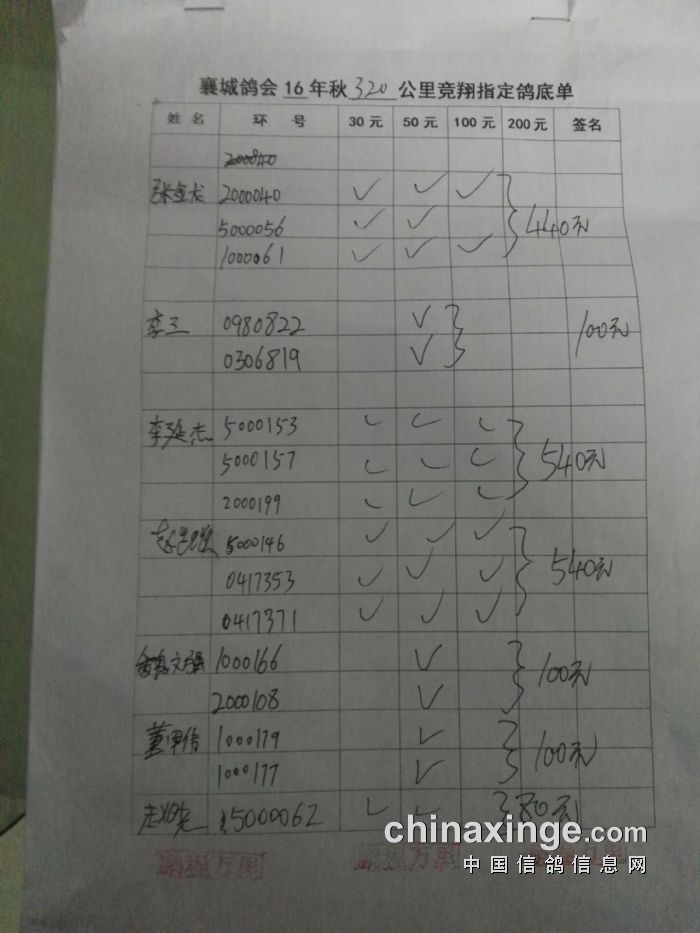 襄城鸽会 16 年秋 320 公里竞翔指定鸽底单
姓名 环号 30元 50元 100元 200元 签名
张金龙 2000040 ✓ ✓ ✓
5000056 ✓ ✓ 440元
1000061 ✓ ✓ ✓
李三 0980822 ✓ 100元
0306819 ✓
李延杰 5000153 ✓ ✓ ✓
5000157 ✓ ✓ ✓ 540元
2000199 ✓ ✓ ✓
5000146 ✓ ✓ ✓
0417353 ✓ ✓ ✓ 540元
0417371 ✓ ✓ ✓
1000166 ✓ 100元
2000108 ✓
1000179 ✓ 100元
1000177 ✓
5000062 ✓ ✓ 80元
chinaxinge.com
中国信鸽信息网